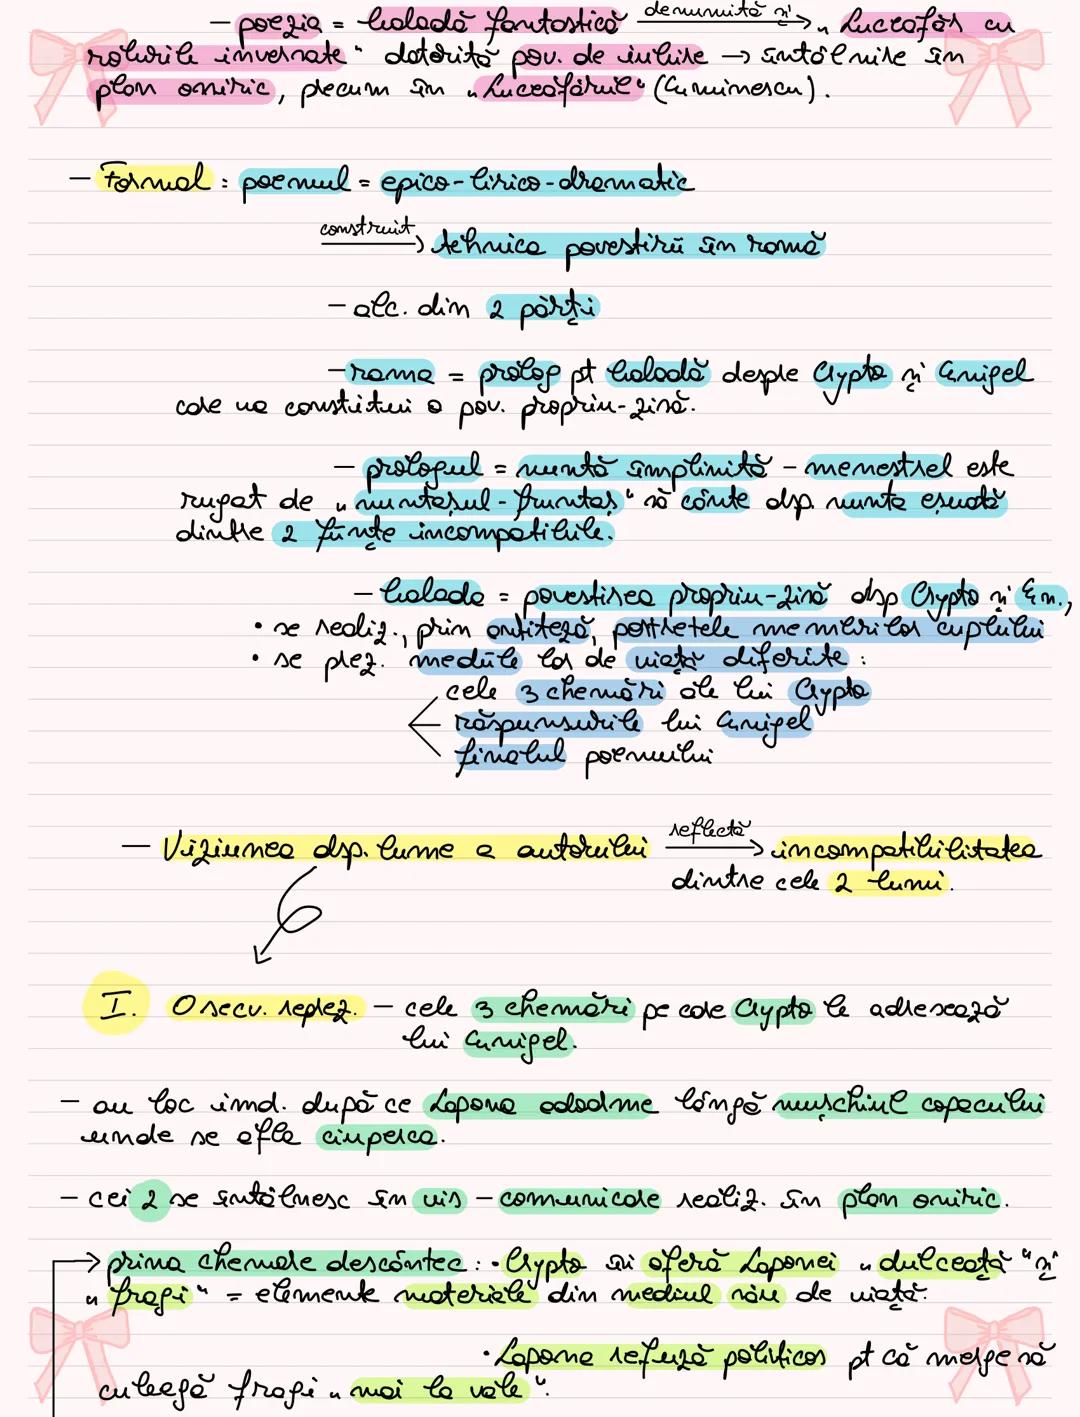 - poezia = baladă fantastică denumită și → „Luceafăr cu
rolurile inversate" datorită pov. de iubire → întâlnire în
plan oniric, precum în „Luceafărul" (Eminescu).
- Formal : poemul = epico-lirico-dramatic
construit → tehnica povestirii în ramă
- alc. din 2 părți
- rama = prolog pt baladă despre Crypto și Enigel
care va constitui o pov. propriu-zisă.
- prologul = nuntă împlinită - menestrel este
rugat de „nuntașul-fruntaș" să cânte dsp. nunta eșuată
dintre 2 ființe incompatibile.
- balada = povestirea propriu-zisă dsp Crypto și En.,
• se realiz., prin antiteză, portretele membrilor cuplului
• se prez. mediile lor de viață diferite :
cele 3 chemări ale lui Crypto
răspunsurile lui Enigel
finalul poemului
- Viziunea dsp. lume a autorului reflectă → incompatibilitatea
dintre cele 2 lumi.
I. O secv. reprez. - cele 3 chemări pe care Crypto le adresează
lui Enigel.
- au loc imd. după ce Lapona adoarme lângă mușchiul copacului
unde se afla ciuperca.
- cei 2 se întâlnesc în vis - comunicare realiz. în plan oniric.
→ prima chemare descântec : • Crypto îi oferă Laponei „dulceață" și
„fragi" = elemente materiale din mediul său de viață.
• Lapona refuză politicos pt că merge să
culeagă fragi „mai la vale".